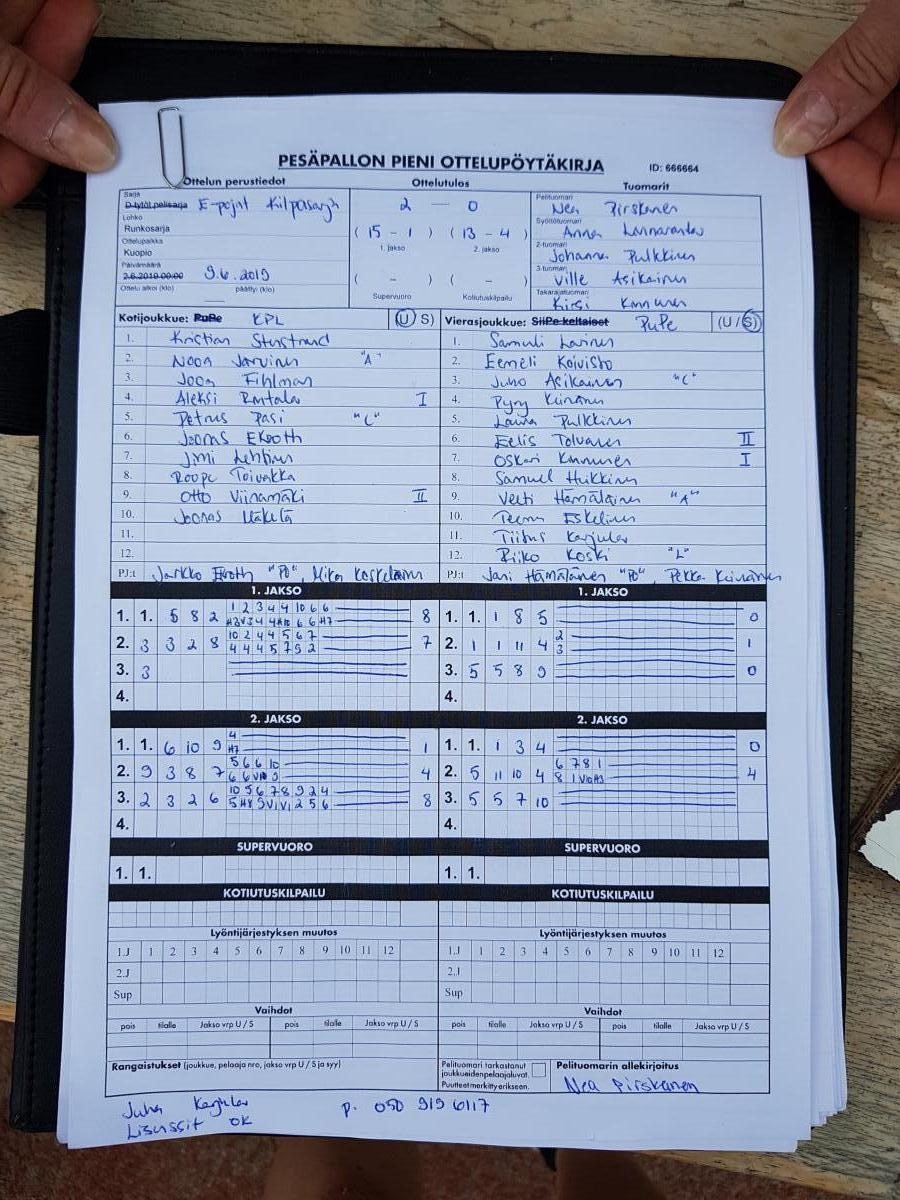 PESÄPALLON PIENI OTTELUPÖYTÄKIRJA ID: 666664
Ottelun perustiedot Ottelutulos Tuomarit
Sarja
D-tytöt pelisarja E-pojat Kilpasarja
Lohko
Runkosarja
Ottelupaikka
Kuopio
Päivämäärä
2.6.2019 00:00 9.6.2019
Ottelu alkoi (klo) päättyi (klo)
2 - 0
(15 - 1) (13 - 4)
1. jakso 2. jakso
( - ) ( - )
Supervuoro Kotiutuskilpailu
Pelituomari
Nea Pirskanen
Syöttötuomari
Anna
2-tuomari
Johanna Pulkkinen
3-tuomari
Ville Asikainen
Takarajatuomari
Kirsi Kinnunen
Kotijoukkue: PuPe KPL (U/S)
1. Kristian
2. Noon Järvinen "A"
3. Joon Fihlman
4. Aleksi Rantala I
5. Petrus Pasi "C"
6. Joonas Ekroth
7. Jimi Lehtinen
8. Roope Toivakka
9. Otto Viinamäki II
10. Joonas Mäkelä
11.
12.
PJ:t Jarkko Ekroth "PD", Mika Koskelainen
Vierasjoukkue: SiiPe keltaiset PuPe (U/S)
1. Samuli Laine
2. Eemeli Koivisto
3. Juho Asikainen "C"
4. Pyry Keinänen
5. Laura Pulkkinen
6. Eelis Tolvanen II
7. Oskari Kinnunen I
8. Samuel Huikkinen
9. Veeti Hämäläinen "A"
10. Teemu Eskelinen
11. Tiitus Karjula
12. Riiko Koski "L"
PJ:t Jani Hämäläinen "PD", Pekka Keinänen
1. JAKSO
1. 1. 5 8 2 1 2 3 4 4 10 6 6 8
2. 3 3 2 8 10 2 4 4 5 6 7 7
4 4 4 5 7 9 2
3. 3
4.
1. JAKSO
1. 1. 1 8 5 0
2. 1 1 11 4 2 1
3
3. 5 5 8 9 0
4.
2. JAKSO
1. 1. 6 10 9 4 1
H7
2. 9 3 8 7 5 6 6 10 4
3. 2 3 2 6 10 5 6 7 8 9 2 4 8
4.
2. JAKSO
1. 1. 1 3 4 0
2. 5 11 10 4 6 7 8 1 4
3. 5 5 7 10
4.
SUPERVUORO
1. 1.
SUPERVUORO
1. 1.
KOTIUTUSKILPAILU
KOTIUTUSKILPAILU
Lyöntijärjestyksen muutos
1.J 1 2 3 4 5 6 7 8 9 10 11 12
2.J
Sup
Lyöntijärjestyksen muutos
1.J 1 2 3 4 5 6 7 8 9 10 11 12
2.J
Sup
Vaihdot
pois tilalle Jakso vrp U / S pois tilalle Jakso vrp U / S
Vaihdot
pois tilalle Jakso vrp U / S pois tilalle Jakso vrp U / S
Rangaistukset (joukkue, pelaaja nro, jakso vrp U / S ja syy)
Pelituomari tarkastanut
joukkueiden pelaajaluvat.
Puutteet merkitty erikseen.
Pelituomarin allekirjoitus
Nea Pirskanen
Juha Karjula p. 050 919 6117
Lisenssit OK